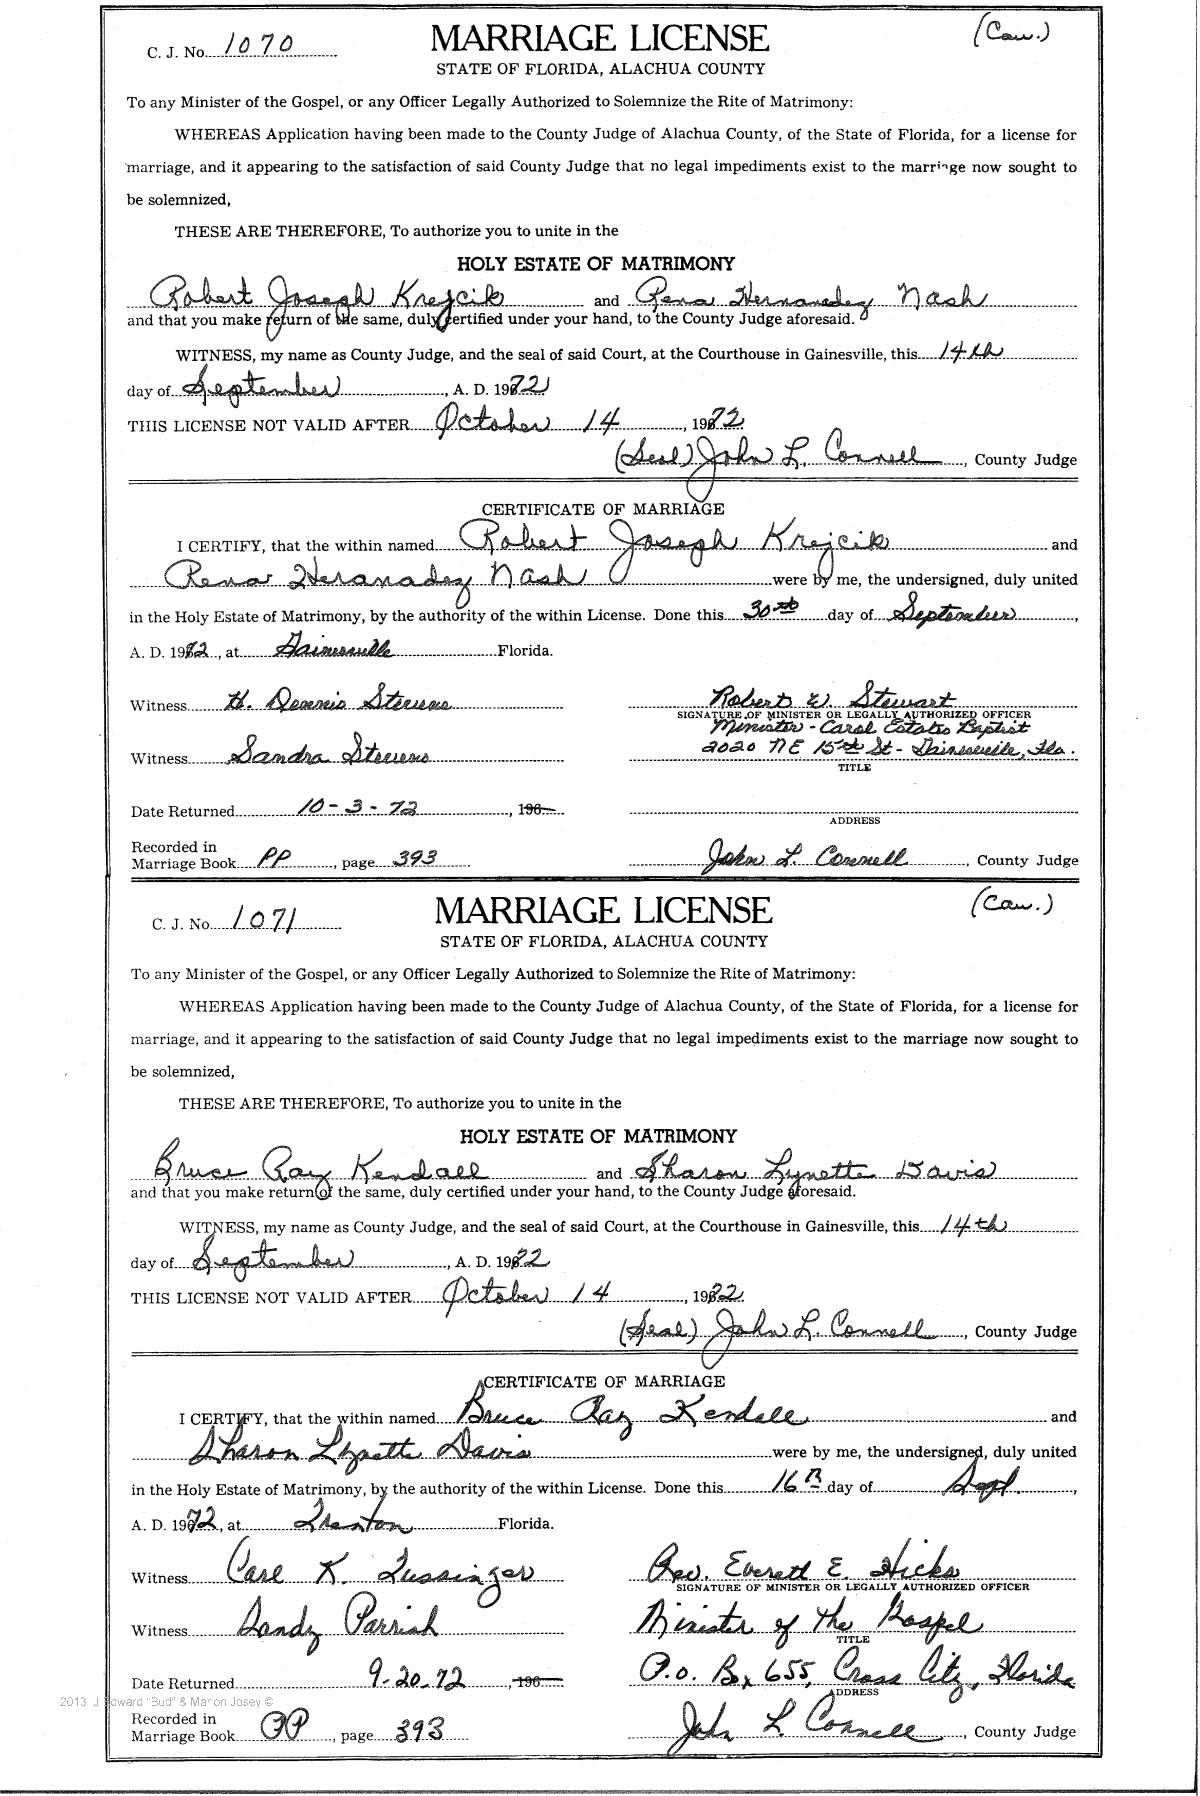 C. J. No. 1070 MARRIAGE LICENSE (Cau.)
STATE OF FLORIDA, ALACHUA COUNTY
To any Minister of the Gospel, or any Officer Legally Authorized to Solemnize the Rite of Matrimony:
WHEREAS Application having been made to the County Judge of Alachua County, of the State of Florida, for a license for
marriage, and it appearing to the satisfaction of said County Judge that no legal impediments exist to the marriage now sought to
be solemnized,
THESE ARE THEREFORE, To authorize you to unite in the
HOLY ESTATE OF MATRIMONY
Robert Joseph Krejcik and Rena Hernanadez Nash
and that you make return of the same, duly certified under your hand, to the County Judge aforesaid.
WITNESS, my name as County Judge, and the seal of said Court, at the Courthouse in Gainesville, this 14th
day of September, A. D. 1972
THIS LICENSE NOT VALID AFTER October 14, 1972
(Seal) John L. Connell, County Judge
CERTIFICATE OF MARRIAGE
I CERTIFY, that the within named Robert Joseph Krejcik and
Rena Heranadez Nash were by me, the undersigned, duly united
in the Holy Estate of Matrimony, by the authority of the within License. Done this 30th day of September,
A. D. 1972, at Gainesville Florida.
Witness H. Dennis Stevens Robert W. Stewart
SIGNATURE OF MINISTER OR LEGALLY AUTHORIZED OFFICER
Minister - Carol Estates Baptist
Witness Sandra Stevens 2020 NE 15th St - Gainesville, Fla.
TITLE
Date Returned 10-3-72, 196
ADDRESS
Recorded in
Marriage Book PP, page 393 John L. Connell, County Judge
C. J. No. 1071 MARRIAGE LICENSE (Cau.)
STATE OF FLORIDA, ALACHUA COUNTY
To any Minister of the Gospel, or any Officer Legally Authorized to Solemnize the Rite of Matrimony:
WHEREAS Application having been made to the County Judge of Alachua County, of the State of Florida, for a license for
marriage, and it appearing to the satisfaction of said County Judge that no legal impediments exist to the marriage now sought to
be solemnized,
THESE ARE THEREFORE, To authorize you to unite in the
HOLY ESTATE OF MATRIMONY
Bruce Ray Kendall and Sharon Lynette Davis
and that you make return of the same, duly certified under your hand, to the County Judge aforesaid.
WITNESS, my name as County Judge, and the seal of said Court, at the Courthouse in Gainesville, this 14th
day of September, A. D. 1972
THIS LICENSE NOT VALID AFTER October 14, 1972
(Seal) John L. Connell, County Judge
CERTIFICATE OF MARRIAGE
I CERTIFY, that the within named Bruce Ray Kendall and
Sharon Lynette Davis were by me, the undersigned, duly united
in the Holy Estate of Matrimony, by the authority of the within License. Done this 16th day of Sept.,
A. D. 1972, at Trenton Florida.
Witness Carl K. Tussinger Rev. Everett E. Hicks
SIGNATURE OF MINISTER OR LEGALLY AUTHORIZED OFFICER
Witness Sandy Parrish Minister of the Gospel
TITLE
Date Returned 9-20-72, 196 P.O. Box 655, Cross City, Florida
ADDRESS
2013 J Edward "Bud" & Marion Josey ©
Recorded in
Marriage Book PP, page 393 John L. Connell, County Judge